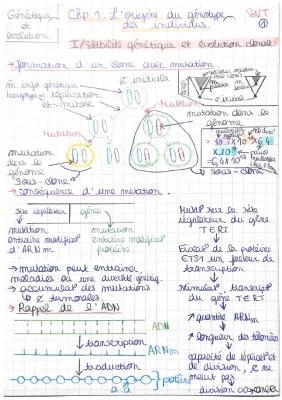 Génétique et évolution
Chp. 1: L'origine du génotype des individus.
SVT
1
I/Stabilité génétique et évolution clonale
→ formation d'un clone avec mutation
∅ initiale
m̂ info génétique
réplication
et mitose
Mutation
Mutation
mutation dans le génome
mutation
dans le
génome
sous-clone
sous-clone
→ conséquence d'une mutation.
site régulateur
gène
mutation
entraîne modificat°
d'ARNm
mutation
entraîne modificat°
protéine
→ mutation peut entraîner
maladies ou une diversité génétiq.
→ accumulat° des mutations
↳ ∅ tumorales
→ Rappel de l'ADN
ADN
↓ transcription
ARNm
↓ traduction
protéine
a.a
Mutat° sur le site
régulateur du gène
TERT
↓
de la protéine
ETS1 un facteur de
transcription
↓
stimulat° transcript°
du gène TERT
↓
↗ quantité ARNm
↓
↗ longueur des télomères
↓
capacité de réplicat° et
de division, ∅ ne
meurt pas
↓
division